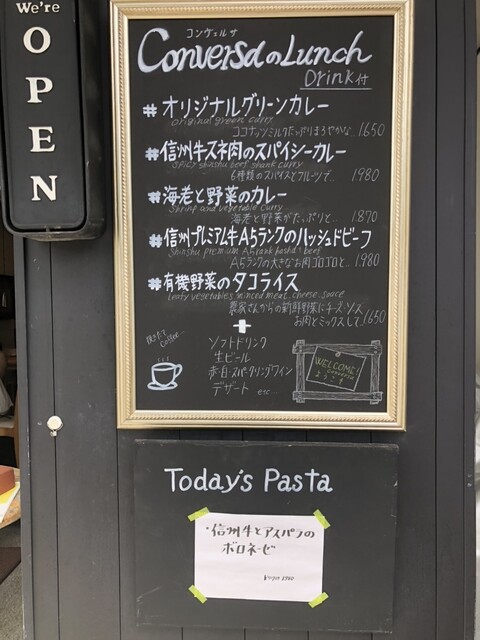 We're
OPEN
コンヴェルサ
ConversaのLunch
Drink付
#オリジナルグリーンカレー
original green curry
ココナッツミルクたっぷりまろやかな… 1650
#信州牛スネ肉のスパイシーカレー
Spicy Shinshu beef shank curry
6種類のスパイスとフルーツで… 1980
#海老と野菜のカレー
Shrimp and vegetable curry
海老と野菜がたっぷりと… 1870
#信州プレミアム牛A5ランクのハッシュドビーフ
Shinshu premium A5 rank hashd beef
A5ランクの大きなお肉ゴロゴロと… 1980
#有機野菜のタコライス
Leafy vegetables minced meat, cheese, sauce
農家さんからの新鮮野菜にチーズ・ソス
お肉とミックスして… 1650
+
ソフトドリンク
生ビール
赤・白・スパークリングワイン
デザート etc…
Coffee…
WELCOME!
conversa
ようこそ
Today's Pasta
・信州牛とアスパラの
ボロネーゼ